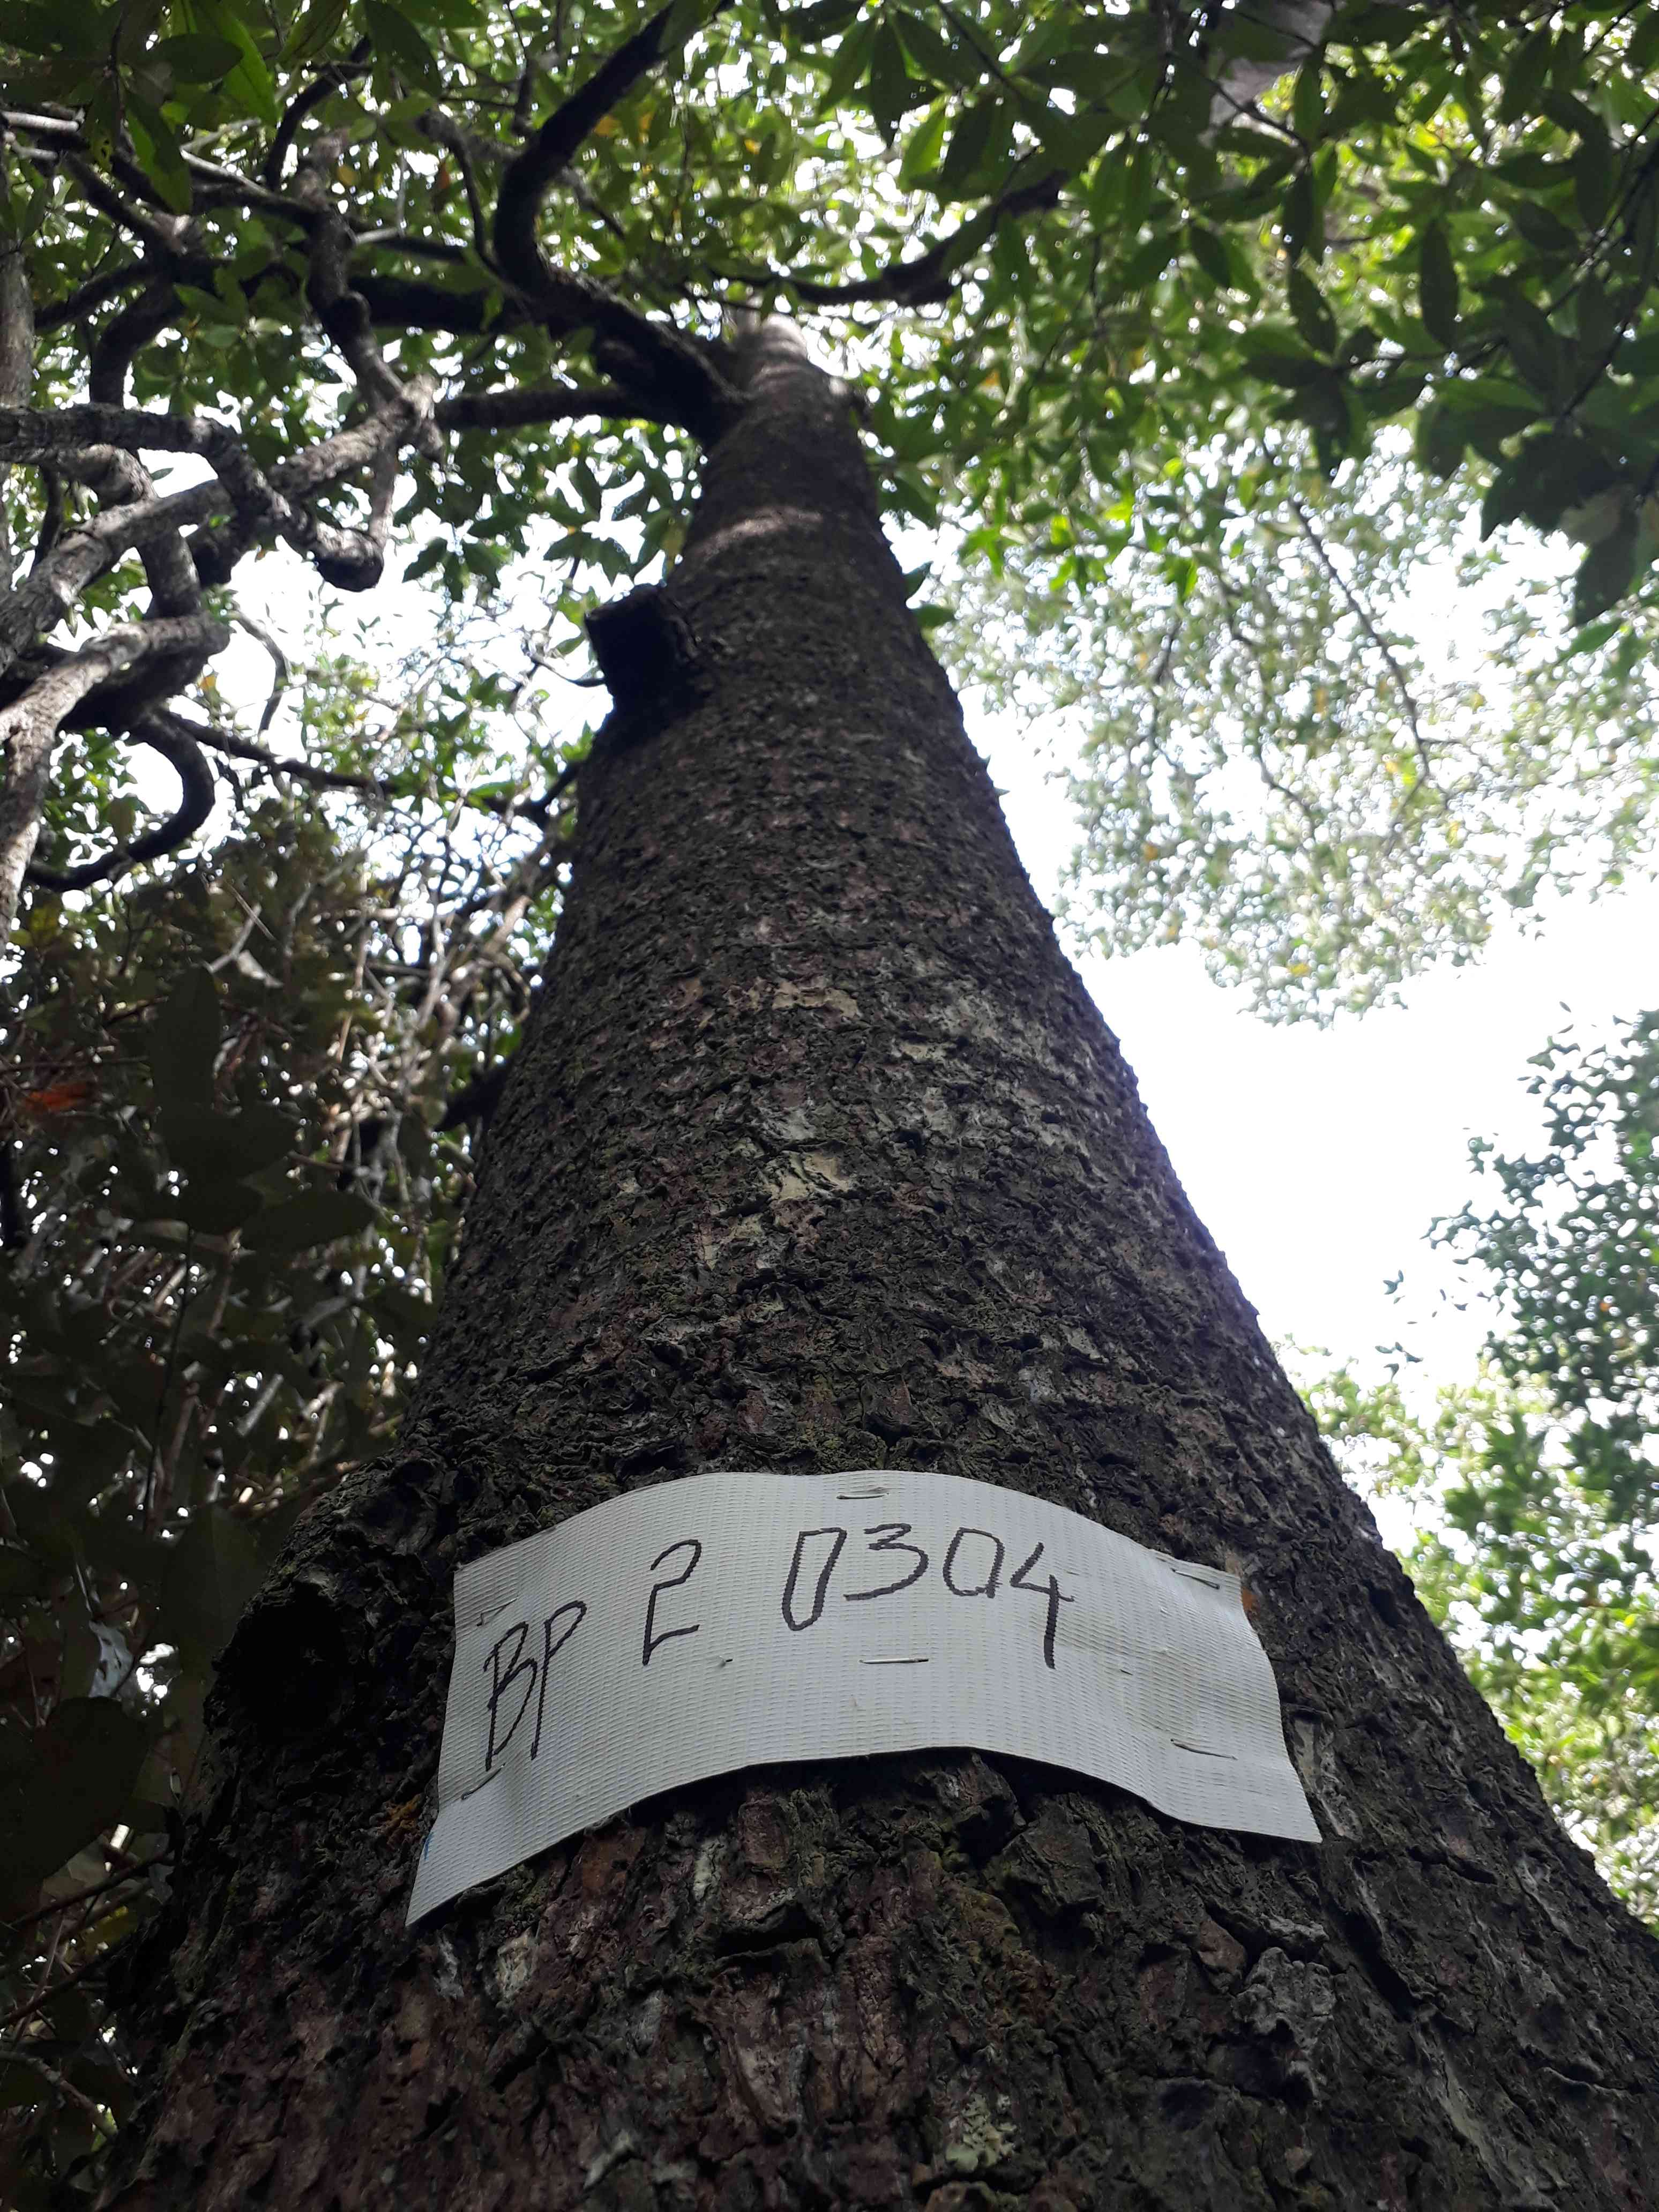 BP 2 0304